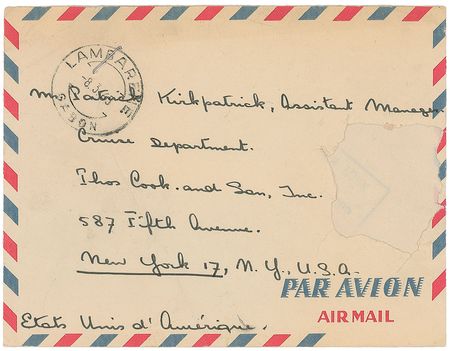 LAMBARENE
GABON
Mr. Patrick Kirkpatrick, Assistant Manager
Cruise Department.
Thos Cook. and Son, Inc.
587 Fifth Avenue.
New York 17, N.Y., U.S.A.
PAR AVION
AIR MAIL
Etats Unis d'Amérique.